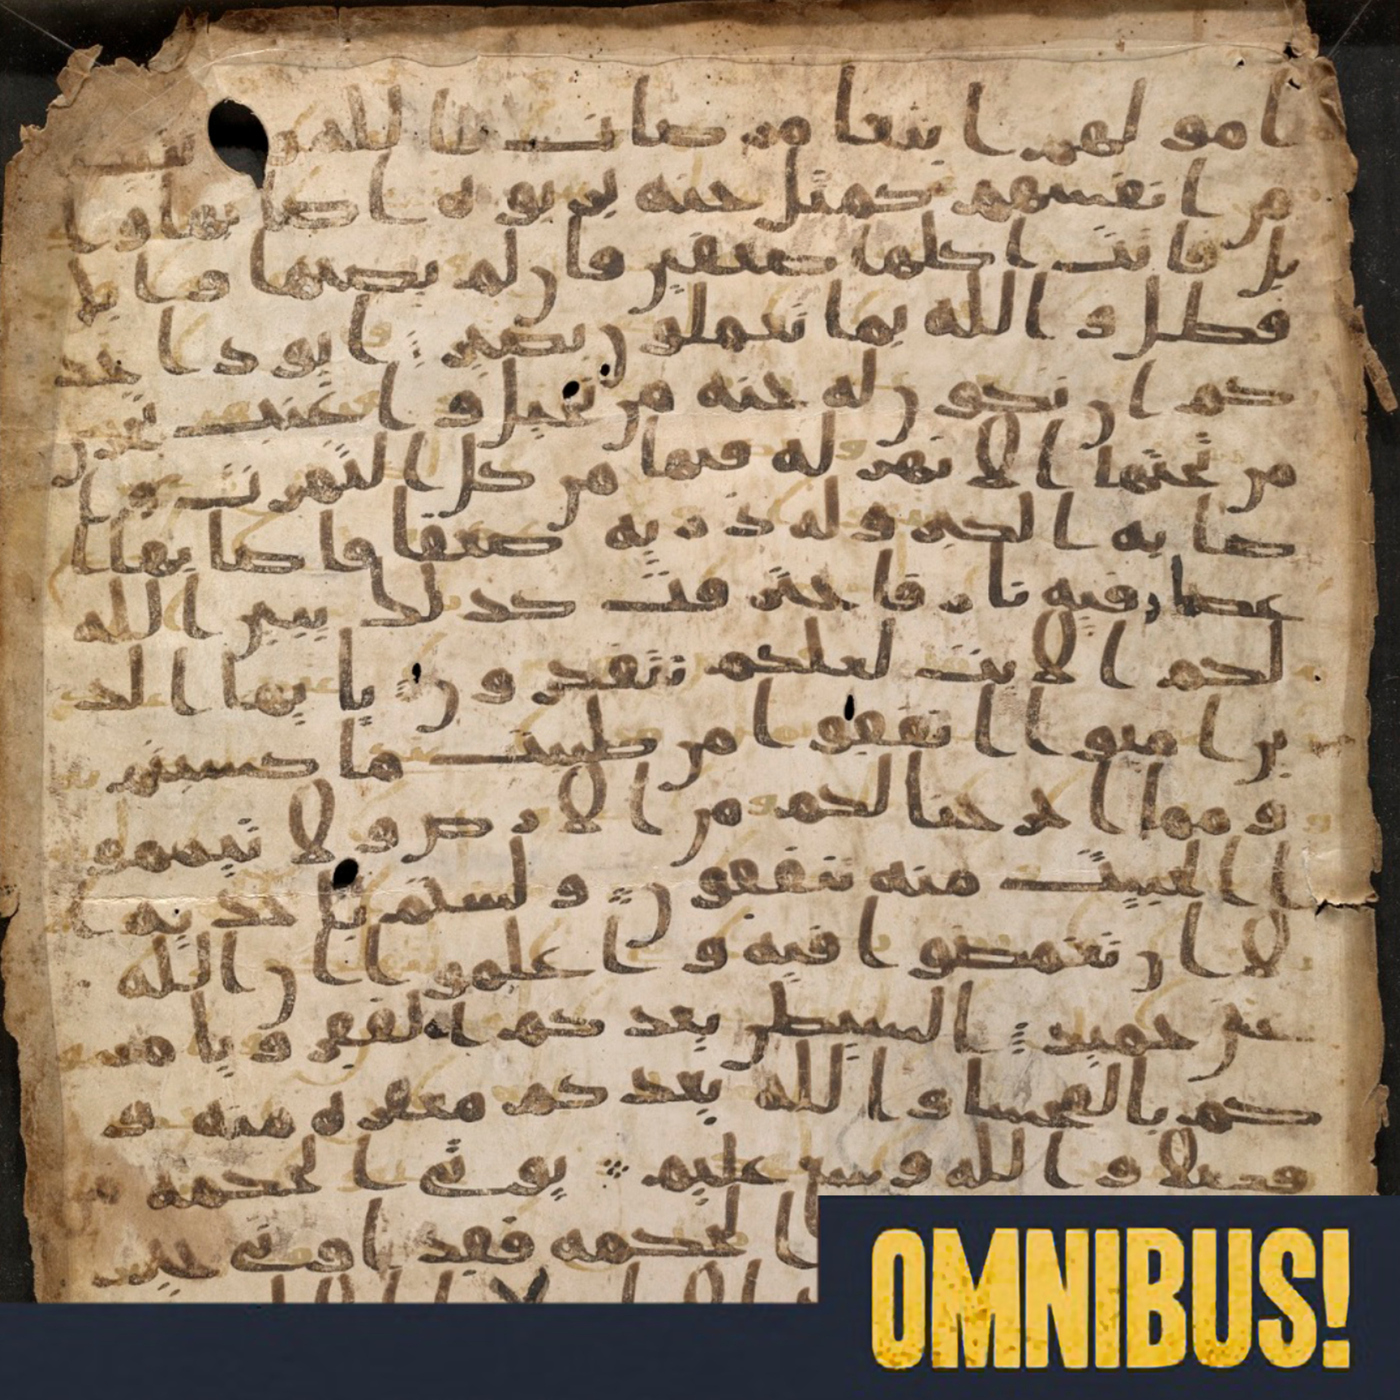 امولهم ابتغا مرضات الله
من انفسهم كمثل جنه بربوه اصابها وا
بل فاتت اكلها ضعفين فان لم يصبها وابل
فطل و الله بما تعملون بصير ايود احد
كم ان تكون له جنه من نخيل و اعنب تجري
من تحتها الانهر له فيها من كل الثمرت و ا
صابه الكبر وله ذريه ضعفا فاصابها ا
عصار فيه نار فاحترقت كذلك يبين الله
لكم الايت لعلكم تتفكرون يايها الذ
ين امنوا انفقوا من طيبت ما كسبتم
و مما اخرجنا لكم من الارض ولا تيممو
ا الخبيث منه تنفقون ولستم باخذيه ا
لا ان تغمضوا فيه و اعلموا ان الله
غني حميد الشيطن يعدكم الفقر ويامر
كم بالفحشا و الله يعدكم مغفره منه و
فضلا و الله وسع عليم يوتي الحكمه
الحكمه فقد اوتي
OMNIBUS!